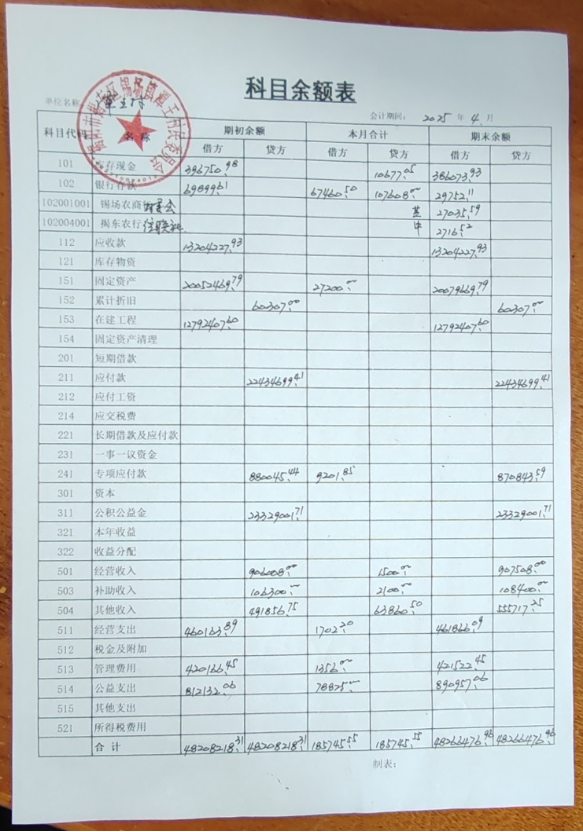 科目余额表
单位名称:
会计期间: 2025 年 4 月
科目代码 名称 期初余额 本月合计 期末余额
借方 贷方 借方 贷方 借方 贷方
101 库存现金 396750.98 10677.05 386073.93
102 银行存款 69899.61 67460.50 107608.00 29752.11
102001001 锡场农商 村委会 27035.59
102004001 揭东农行 2716.52
112 应收款 13204227.93 13204227.93
121 库存物资
151 固定资产 20052469.79 27200.00 20079669.79
152 累计折旧 60307.00 60307.00
153 在建工程 12792407.60 12792407.60
154 固定资产清理
201 短期借款
211 应付款 22434699.41 22434699.41
212 应付工资
214 应交税费
221 长期借款及应付款
231 一事一议资金
241 专项应付款 880045.44 9201.85 870843.59
301 资本
311 公积公益金 23329001.71 23329001.71
321 本年收益
322 收益分配
501 经营收入 906008.00 1500.00 907508.00
503 补助收入 106300.00 2100.00 108400.00
504 其他收入 491856.75 63860.50 555717.25
511 经营支出 460163.89 1702.20 461866.09
512 税金及附加
513 管理费用 420166.45 1356.00 421522.45
514 公益支出 812132.06 78825.00 890957.06
515 其他支出
521 所得税费用
合 计 48208218.31 48208218.31 185745.55 185745.55 48266476.96 48266476.96
制表: